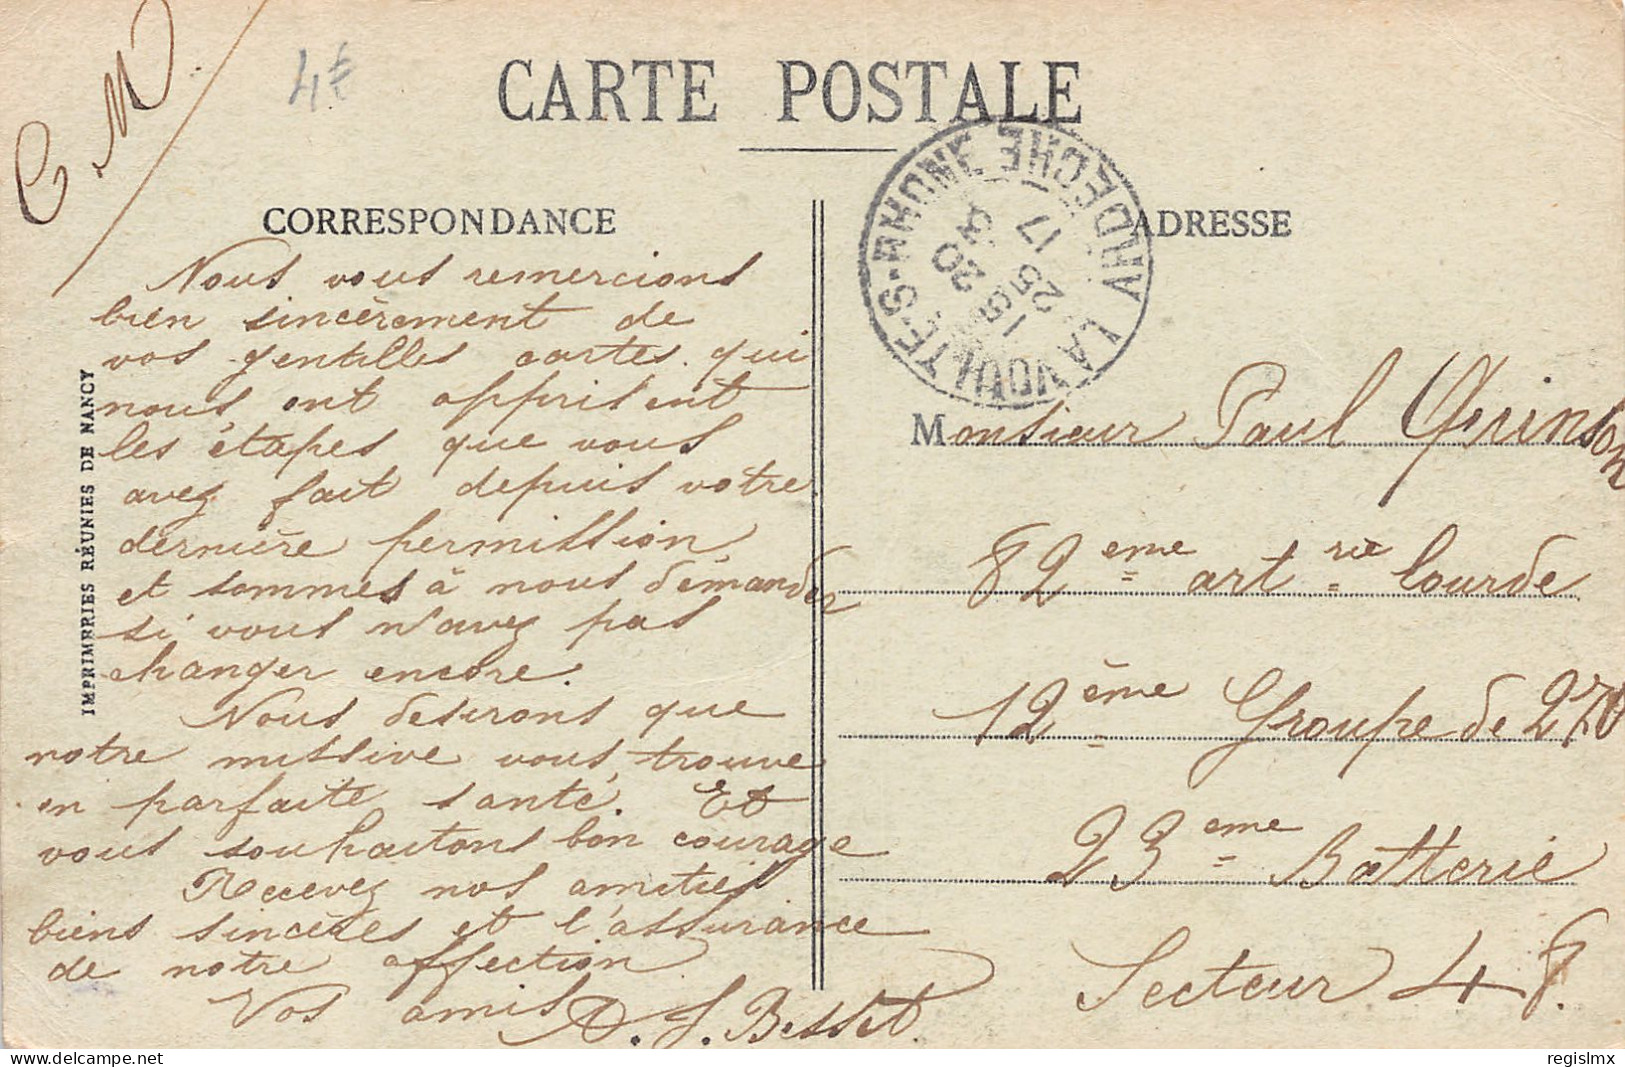 C M
4€
CARTE POSTALE
CORRESPONDANCE
ADRESSE
LA VOULTE-S-RHONE ARDECHE
20
25 - 3
17
IMPRIMERIES RÉUNIES DE NANCY
Nous vous remercions
bien sincèrement de
vos gentilles cartes qui
nous ont appris ent
les étapes que vous
avez fait depuis votre
dernière permission,
et sommes à nous démander
si vous n'avez pas
changer encore.
Nous desirons que
notre missive vous trouve
en parfaite santé. Et
vous souhaitons bon courage
Recevez nos amitiés
biens sincères et l'assurance
de notre affection
Vos amis
A. J. Bessit
Monsieur Paul Quinson
82 eme art rie lourde
12 ème Groupe de 270
23 eme Batterie
Secteur 48.
regislmx